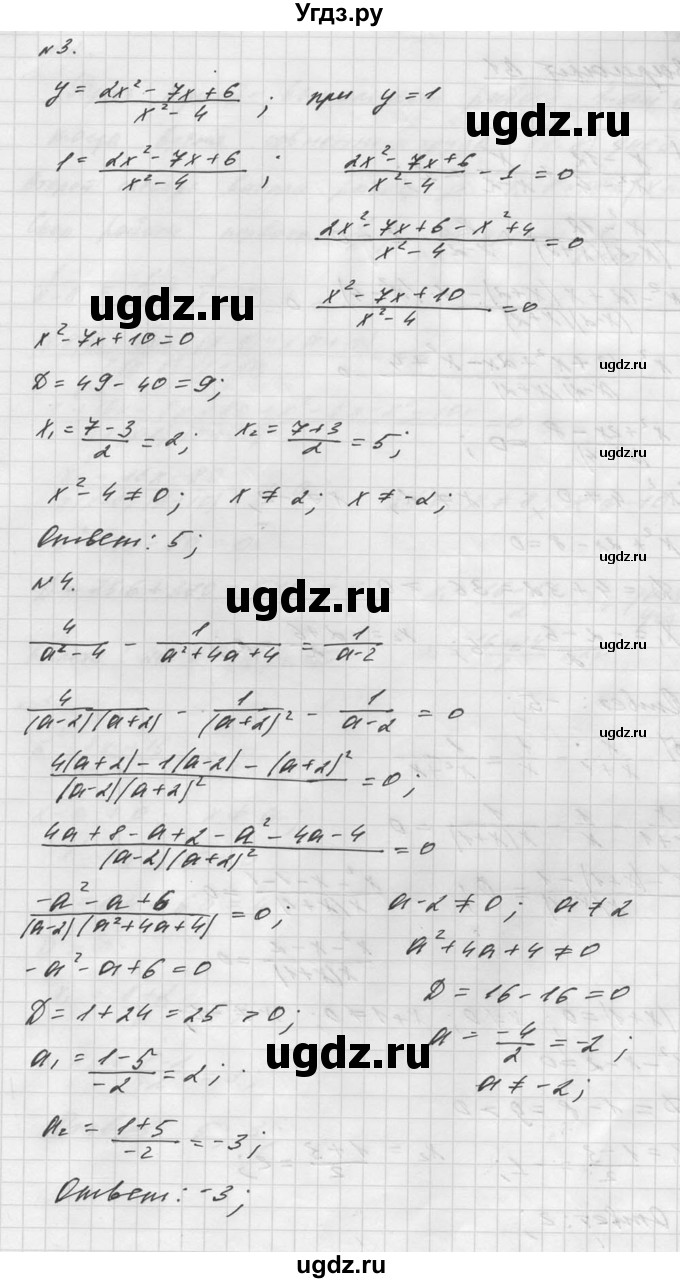 Угдз.ру
№3.
y = (2x² - 7x + 6)/(x² - 4) ; при y = 1
1 = (2x² - 7x + 6)/(x² - 4) ; (2x² - 7x + 6)/(x² - 4) - 1 = 0
(2x² - 7x + 6 - x² + 4)/(x² - 4) = 0
(x² - 7x + 10)/(x² - 4) = 0
ugdz.ru
x² - 7x + 10 = 0
ugdz.ru
D = 49 - 40 = 9;
x₁ = (7 - 3)/2 = 2; x₂ = (7 + 3)/2 = 5;
ugdz.ru
x² - 4 ≠ 0; x ≠ 2; x ≠ -2;
Ответ: 5;
ugdz.ru
№4.
ugdz.ru
4/(a² - 4) - 1/(a² + 4a + 4) = 1/(a - 2)
4/((a-2)(a+2)) - 1/(a+2)² - 1/(a-2) = 0
ugdz.ru
(4(a+2) - 1(a-2) - (a+2)²)/((a-2)(a+2)²) = 0;
(4a + 8 - a + 2 - a² - 4a - 4)/((a-2)(a+2)²) = 0
(-a² - a + 6)/((a-2)(a² + 4a + 4)) = 0; a - 2 ≠ 0; a ≠ 2
a² + 4a + 4 ≠ 0
-a² - a + 6 = 0
D = 16 - 16 = 0
D = 1 + 24 = 25 > 0;
a = -4/2 = -2;
ugdz.ru
a₁ = (1 - 5)/-2 = 2;
a ≠ -2;
a₂ = (1 + 5)/-2 = -3;
Ответ: -3;
ugdz.ru